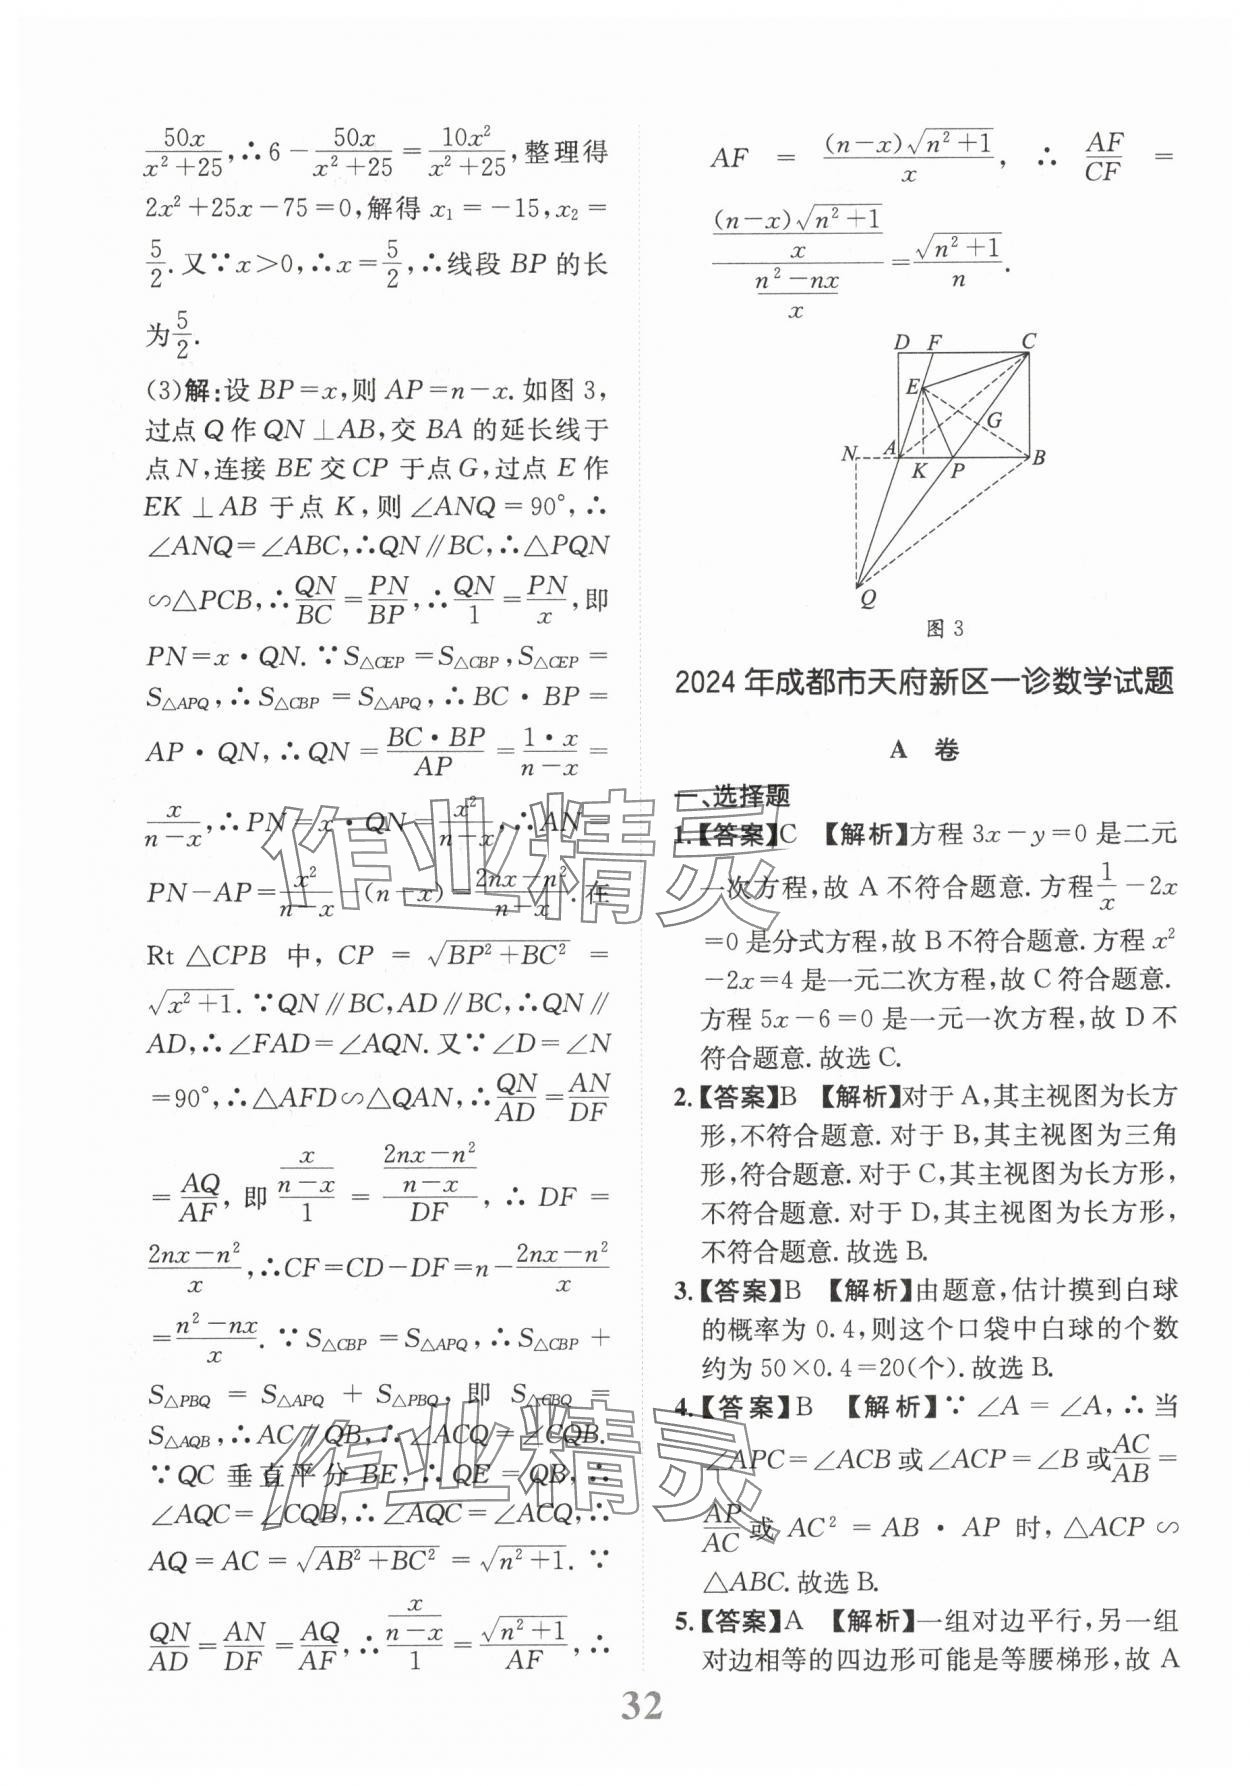 50x/(x²+25),∴6−50x/(x²+25)=10x²/(x²+25),整理得
2x²+25x−75=0,解得 x₁=−15,x₂=
5/2.又∵x>0,∴x=5/2,∴线段 BP 的长
为5/2.
(3)解:设 BP=x,则 AP=n−x.如图 3,
过点 Q 作 QN⊥AB,交 BA 的延长线于
点 N,连接 BE 交 CP 于点 G,过点 E 作
EK⊥AB 于点 K,则∠ANQ=90°,∴
∠ANQ=∠ABC,∴QN∥BC,∴△PQN
∽△PCB,∴QN/BC=PN/BP,∴QN/1=PN/x,即
PN=x·QN.∵S△CEP=S△CBP,S△CEP=
S△APQ,∴S△CBP=S△APQ,∴BC·BP=
AP·QN,∴QN=BC·BP/AP=1·x/(n−x)=
x/(n−x),∴PN=x·QN=x²/(n−x),∴AN=
PN−AP=x²/(n−x)−(n−x)=(2nx−n²)/(n−x).在
Rt△CPB 中,CP=√(BP²+BC²)=
√(x²+1).∵QN∥BC,AD∥BC,∴QN∥
AD,∴∠FAD=∠AQN.又∵∠D=∠N
=90°,∴△AFD∽△QAN,∴QN/AD=AN/DF
=AQ/AF,即(x/(n−x))/1=((2nx−n²)/(n−x))/DF,∴DF=
(2nx−n²)/x,∴CF=CD−DF=n−(2nx−n²)/x
=(n²−nx)/x.∵S△CBP=S△APQ,∴S△CBP+
S△PBQ=S△APQ+S△PBQ,即 S△CBQ=
S△AQB,∴AC∥QB,∴∠ACQ=∠CQB.
∵QC 垂直平分 BE,∴QE=QB,∴
∠AQC=∠CQB,∴∠AQC=∠ACQ,∴
AQ=AC=√(AB²+BC²)=√(n²+1).∵
QN/AD=AN/DF=AQ/AF,∴(x/(n−x))/1=√(n²+1)/AF,∴
AF=(n−x)√(n²+1)/x,∴AF/CF=
((n−x)√(n²+1)/x)/((n²−nx)/x)=√(n²+1)/n.
D F C
E
G
N A K P B
Q
图 3
2024 年成都市天府新区一诊数学试题
A 卷
一、选择题
1.【答案】C 【解析】方程 3x−y=0 是二元
一次方程,故 A 不符合题意.方程1/x−2x
=0 是分式方程,故 B 不符合题意.方程 x²
−2x=4 是一元二次方程,故 C 符合题意.
方程 5x−6=0 是一元一次方程,故 D 不
符合题意.故选 C.
2.【答案】B 【解析】对于 A,其主视图为长方
形,不符合题意.对于 B,其主视图为三角
形,符合题意.对于 C,其主视图为长方形,
不符合题意.对于 D,其主视图为长方形,
不符合题意.故选 B.
3.【答案】B 【解析】由题意,估计摸到白球
的概率为 0.4,则这个口袋中白球的个数
约为 50×0.4=20(个).故选 B.
4.【答案】B 【解析】∵∠A=∠A,∴当
∠APC=∠ACB 或∠ACP=∠B 或AC/AB=
AP/AC或 AC²=AB·AP 时,△ACP∽
△ABC.故选 B.
5.【答案】A 【解析】一组对边平行,另一组
对边相等的四边形可能是等腰梯形,故 A
32
作业精灵
作业精灵